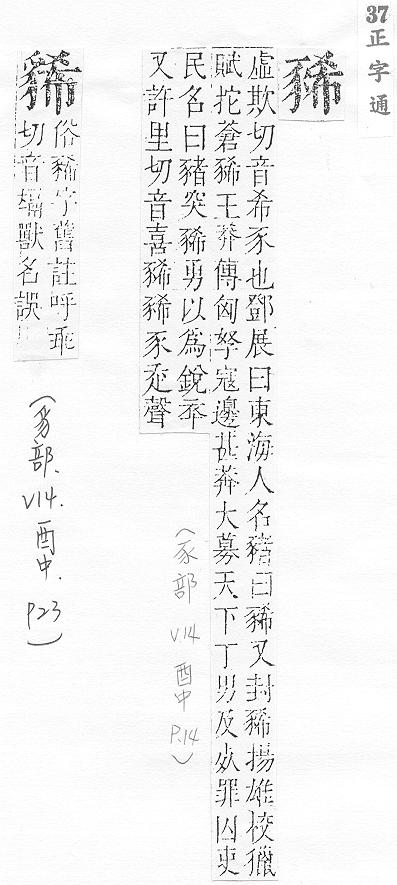 37 正字通
豨
虛欺切音希豕也鄧展曰東海人名豬曰豨又封豨揚雄校獵
賦拕蒼豨王莽傳匈孥寇邊甚莽大募天下丁男及死罪囚吏
民名曰豬突豨勇以為銳卒
又許里切音喜豨豨豕走聲
(豕部 V.14 酉中 P.14)
俗豨字舊註呼乖
切音獸名誤
(豸部、V.14.酉中.P23)